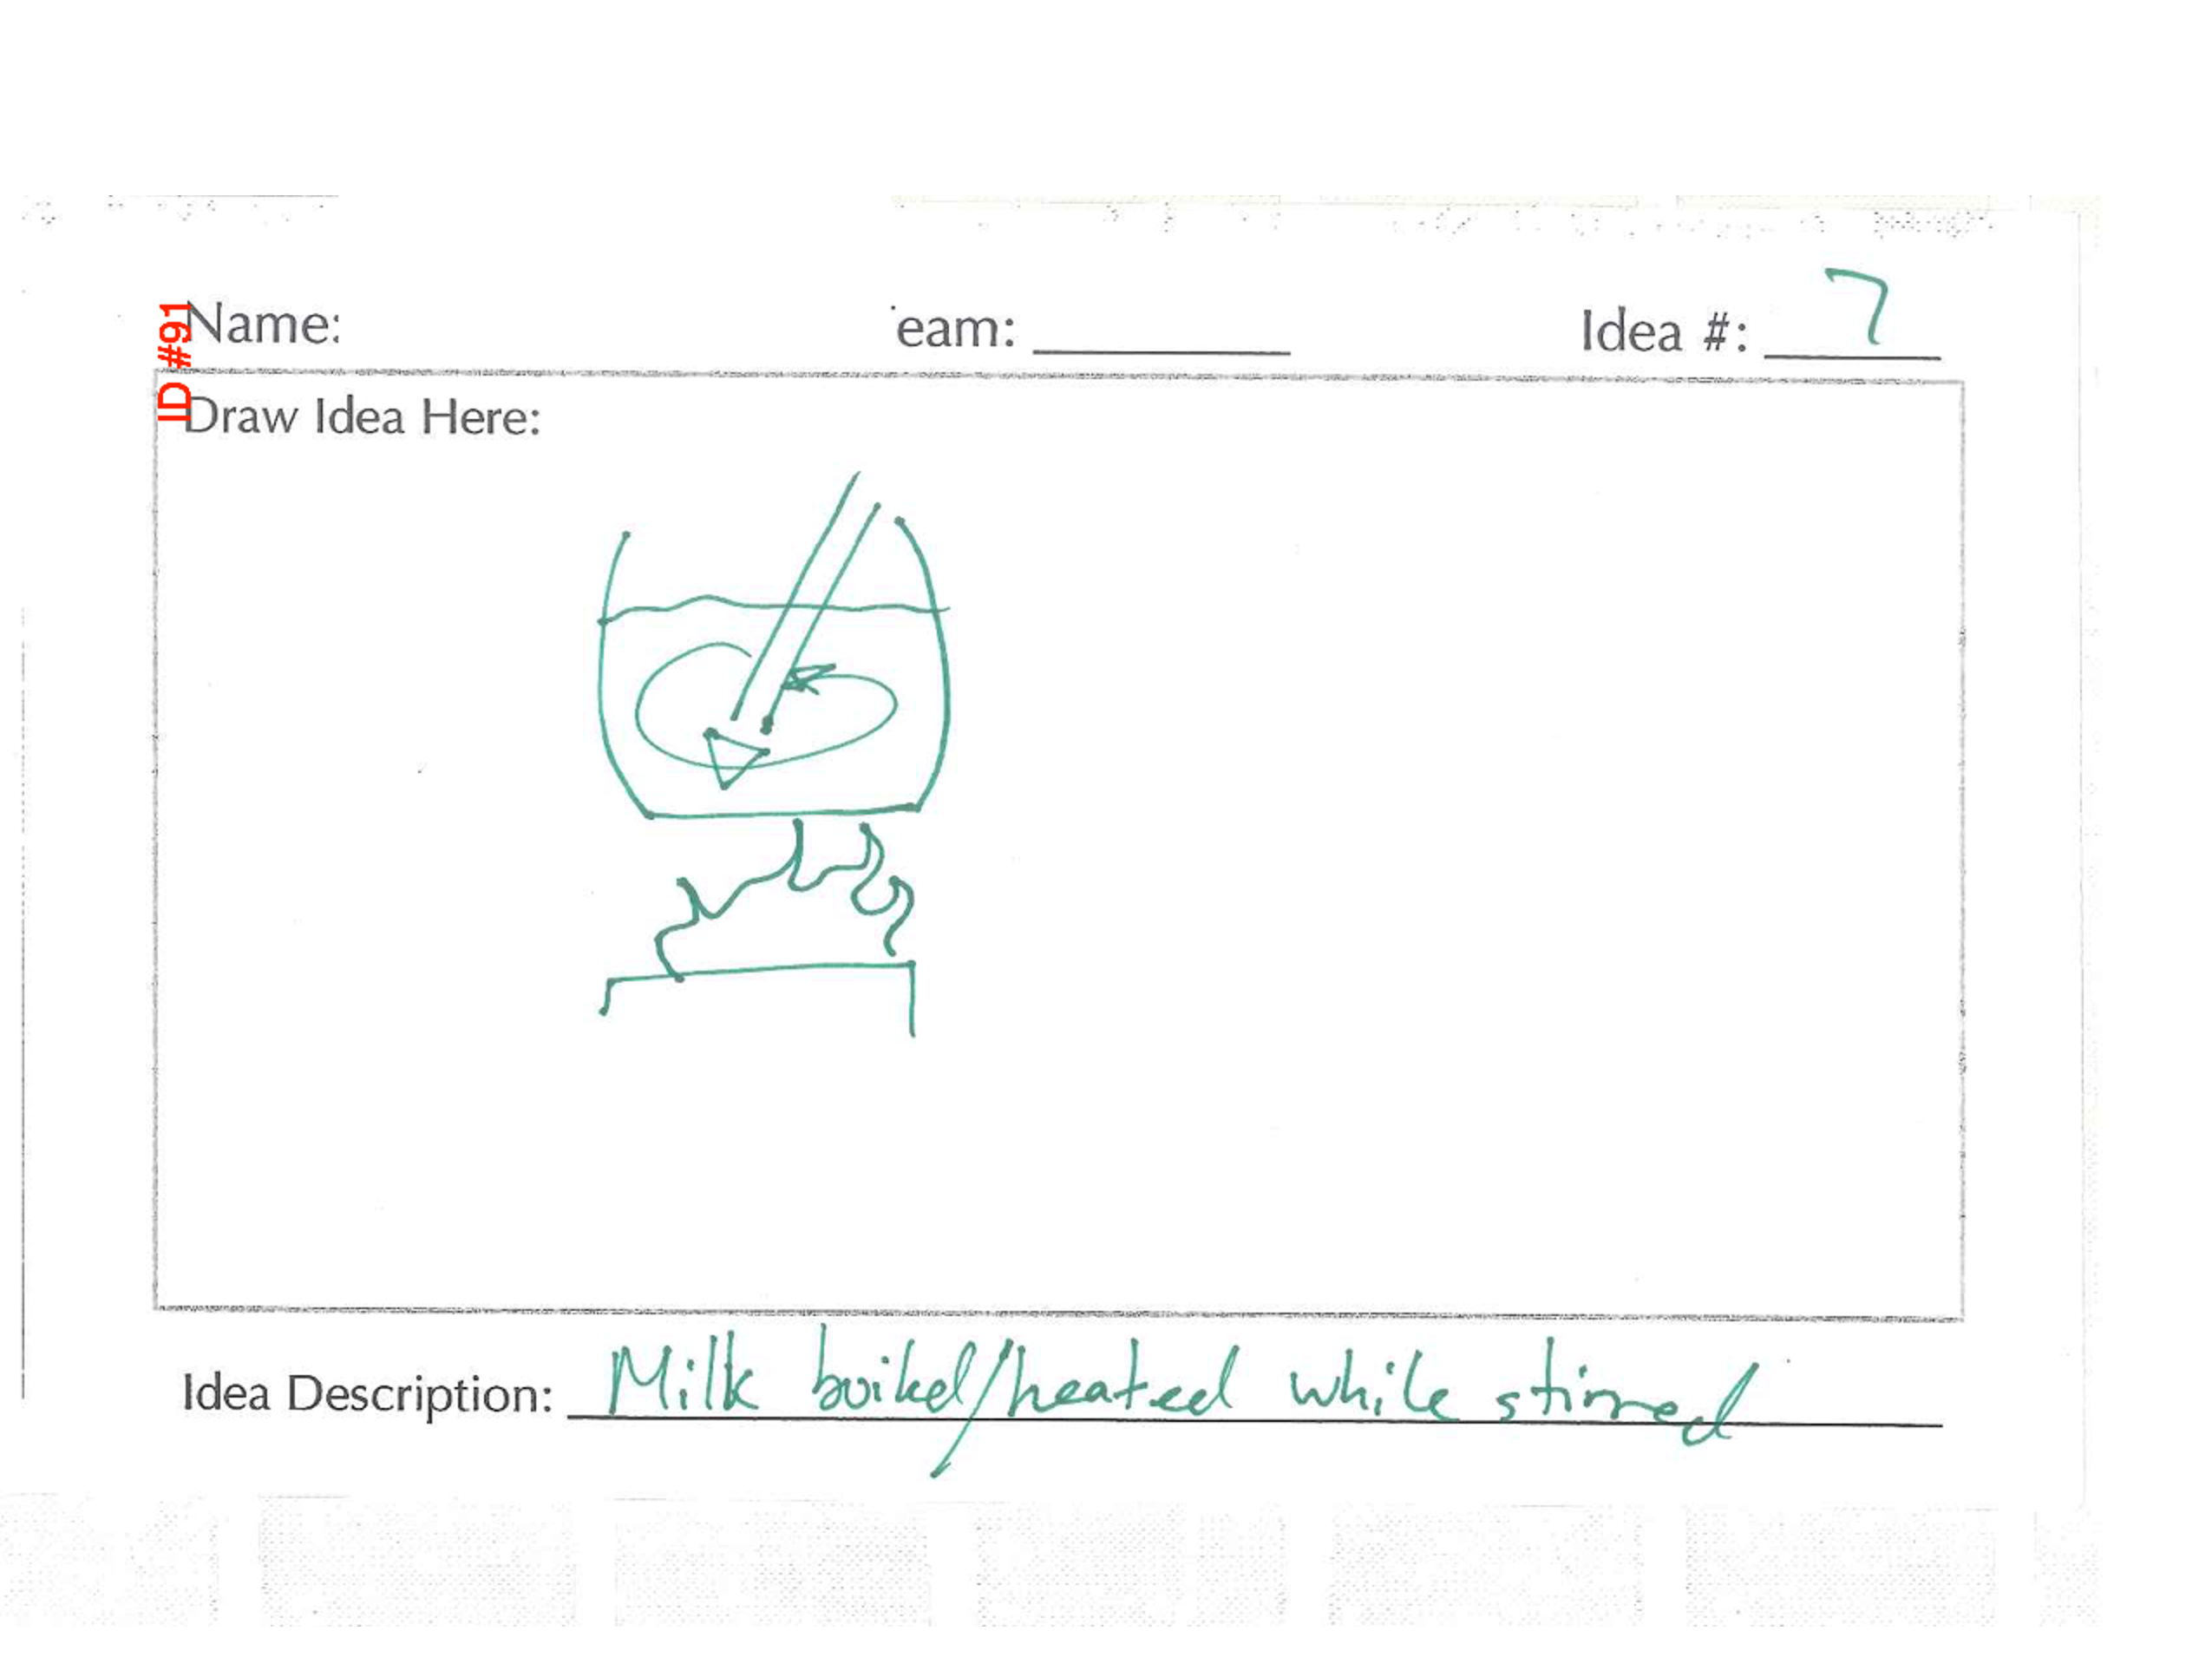 ID#91
Name: eam: Idea #: 7
Draw Idea Here:
Idea Description: Milk boiled/heated while stirred